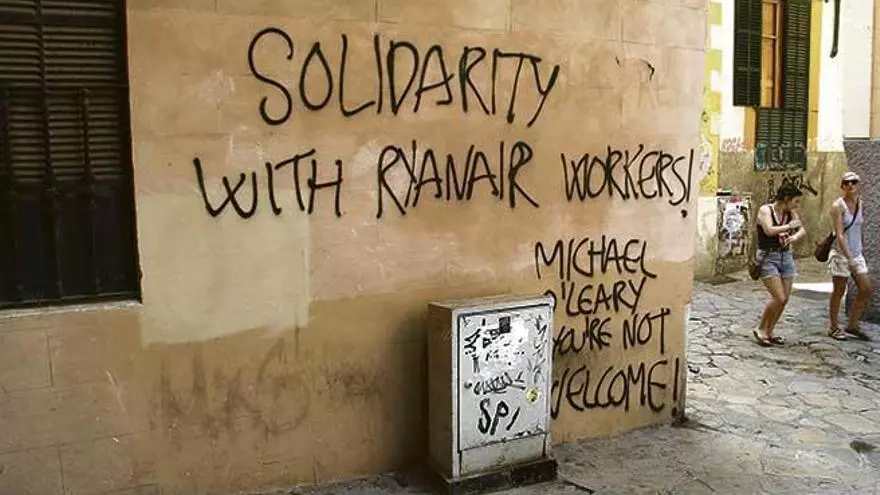 SOLIDARITY
WITH RYANAIR WORKERS!
MICHAEL
O'LEARY
YOU'RE NOT
WELCOME!
SP!